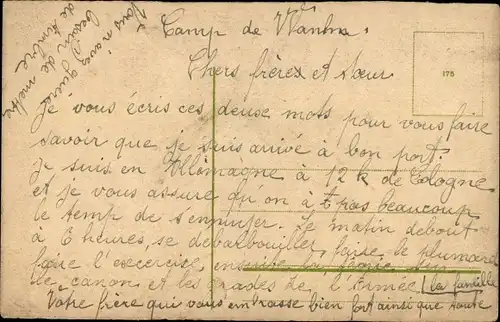 Camp de Wanha.
Chers frères et sœur
Je vous écris ces deuse mots pour vous faire
savoir que je suis arrivé à bon port.
Je suis en Allemagne à 12 k de Cologne
et je vous assure qu'on à t pas beaucoup
le temp de s'ennuyer. Le matin debout
à 6 heures, se débarbouiller, faire le plumard
faire l'exercice, ensuite
de canon et les grades de l'Armée
Votre frère qui vous embrasse bien fort ainsi que toute
(la famille
Vous n'avez
besoin guère
de mettre
de timbre
175